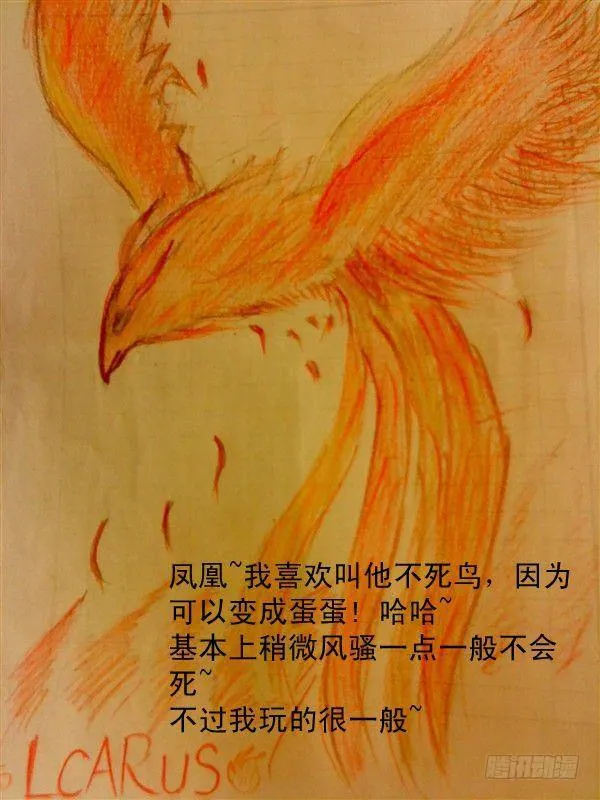 凤凰~我喜欢叫他不死鸟，因为
可以变成蛋蛋！哈哈~
基本上稍微风骚一点一般不会
死~
不过我玩的很一般~
LCARUS
腾讯动漫